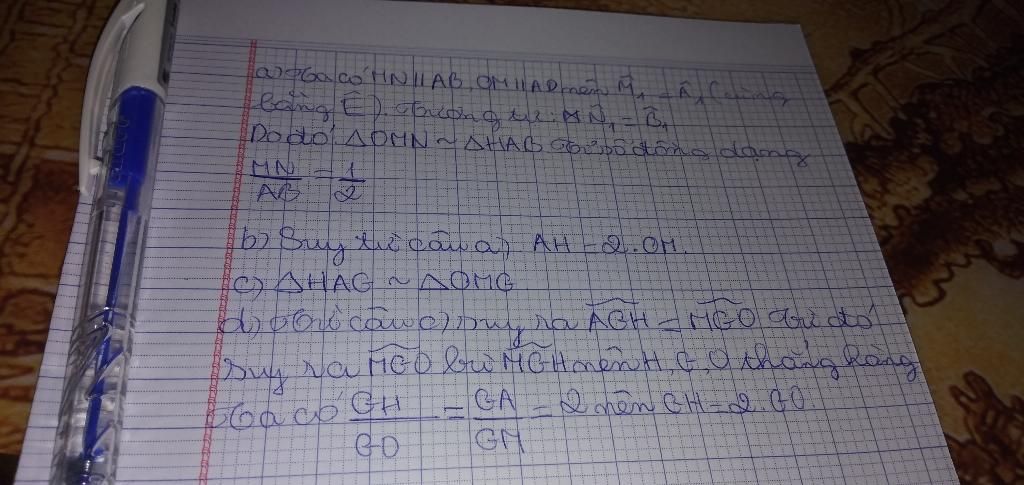 a) Ta có MN//AB, OM//AD nên M̂₁ = Â₁ (cùng
bằng Ê). Tương tự: N̂₁ = B̂₁
Do đó: ΔOMN ~ ΔHAB tỉ số đồng dạng
MN/AB = 1/2
b) Suy từ câu a) AH = 2.OM.
c) ΔHAG ~ ΔOMG
d) Từ câu c) suy ra AGH = MGO từ đó
suy ra MGO bù MGH nên H, G, O thẳng hàng
Ta có GH/GO = GA/GM = 2 nên GH = 2.GO.